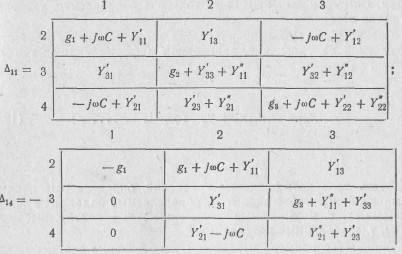 1 2 3
2 g₁ + jωC + Y′₁₁ Y′₁₃ —jωC + Y′₁₂
Δ₁₁ = 3 Y′₃₁ g₂ + Y′₃₃ + Y″₁₁ Y′₃₂ + Y″₁₂ ;
4 —jωC + Y′₂₁ Y′₂₃ + Y″₂₁ g₃ + jωC + Y′₂₂ + Y″₂₂
1 2 3
2 —g₁ g₁ + jωC + Y′₁₁ Y′₁₃
Δ₁₄ = — 3 0 Y′₃₁ g₂ + Y″₁₁ + Y′₃₃
4 0 Y′₂₁ — jωC Y″₂₁ + Y′₂₃